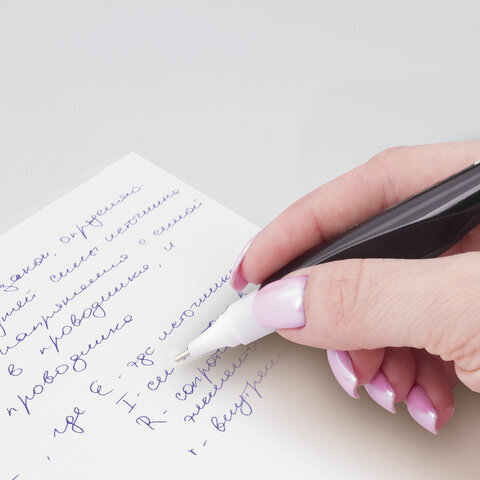 закон, определяю
щей силы источника
напряжения с силой
в проводнике, и
проводника
, где Е - эдс источника
I - си
R - сопрот
r - внутрен